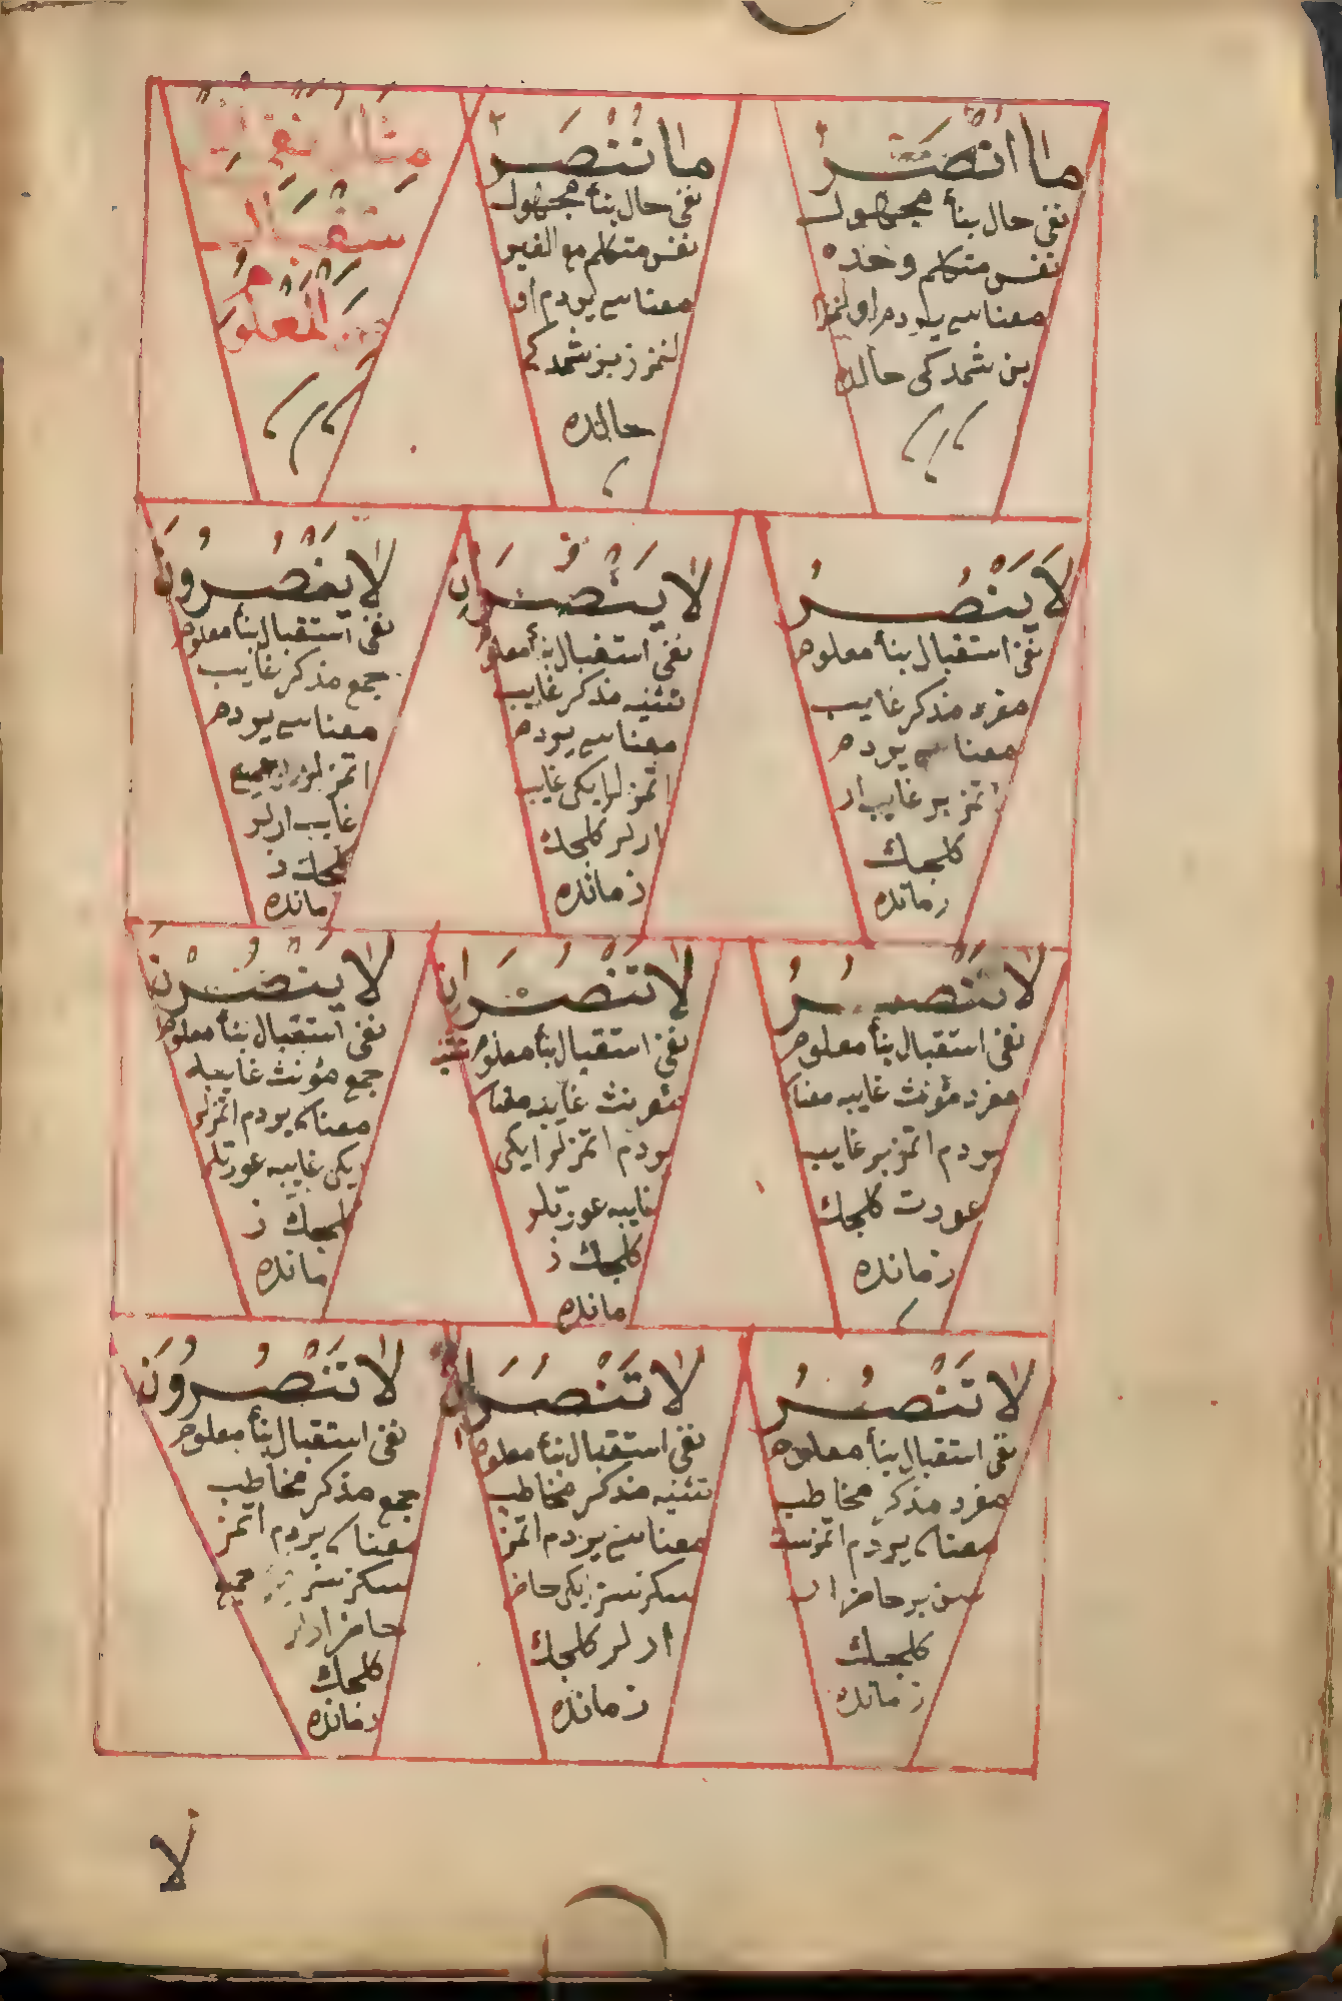 ما انصر
نفى حال بنأ مجهول
نفس متكلم وحده
معناسى يردم اولنمز
بن شمدكى حالده
ما ننصر
نفى حال بنأ مجهول
نفس متكلم مع الغير
معناسى يردم او
لنمز زبز شمدكى
حالنده
مثال نفى
ستقبال
المعلوم
لَا يَنْصُرُ
نفى استقبال بنأ معلوم
مفرد مذكر غايب
معناسى يردم
اتمز بر غايب ار
كلجك
زمانده
لا ينصران
نفى استقبال بنأ معلوم
تثنيه مذكر غايب
معناسى يردم
اتمزلر ايكى غايب
ارلر كلجك
زمانده
لا ينصرون
نفى استقبال بنأ معلوم
جمع مذكر غايب
معناسى يردم
اتمزلر جميع
غايب ارلر
كلجك ز
مانده
لا تنصر
نفى استقبال بنأ معلوم
مفرد مؤنث غايبه معنا
يردم اتمز بر غايب
عورت كلجك
زمانده
لا تنصران
نفى استقبال بنأ معلوم تثنيه
مؤنث غايبه معنا
يردم اتمزلر ايكى
غايبه عورتلر
كلجك ز
مانده
لا ينصرن
نفى استقبال بنأ معلوم
جمع مؤنث غايبه
معنا يردم اتمزلر
يكى غايبه عورتلر
كلجك ز
مانده
لا تنصر
نفى استقبال بنأ معلوم
مفرد مذكر مخاطب
معنا يردم اتمزسن
سن بر حاضر ار
كلجك
زمانده
لا تنصران
نفى استقبال بنأ معلوم
تثنيه مذكر مخاطب
معناسى يردم اتمز
سكز سز ايكى حاضر
ارلر كلجك
زمانده
لا تنصرون
نفى استقبال بنأ معلوم
جمع مذكر مخاطب
معنا يردم اتمز
سكز سز جميع
حاضر ارلر
كلجك
زمانده
لا